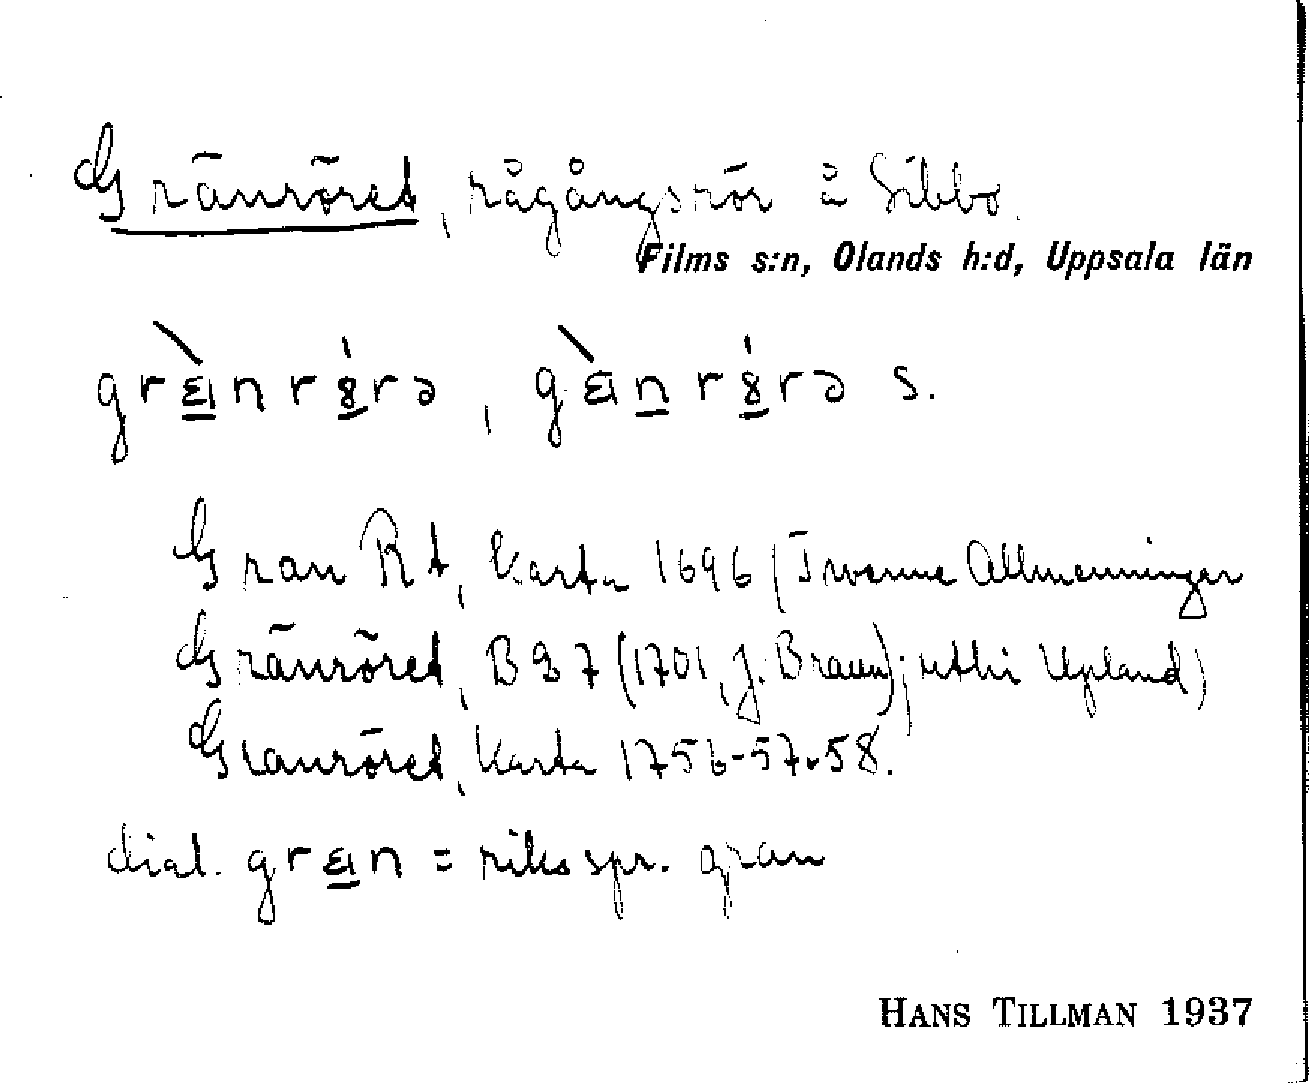 Gränröret, rågångsrör å Sibbo.
Films s:n, Olands h:d, Uppsala län
græ̀nrɤ́rə, gæ̀nrɤ́rə s.
Gran Rt, Karta 1696 (Twenne Allmenningar
Gränröret, B 37 (1701, J. Braun); uthi Upland)
Granröret, Karta 1756-57-58.
dial. græn = riksspr. gran
HANS TILLMAN 1937